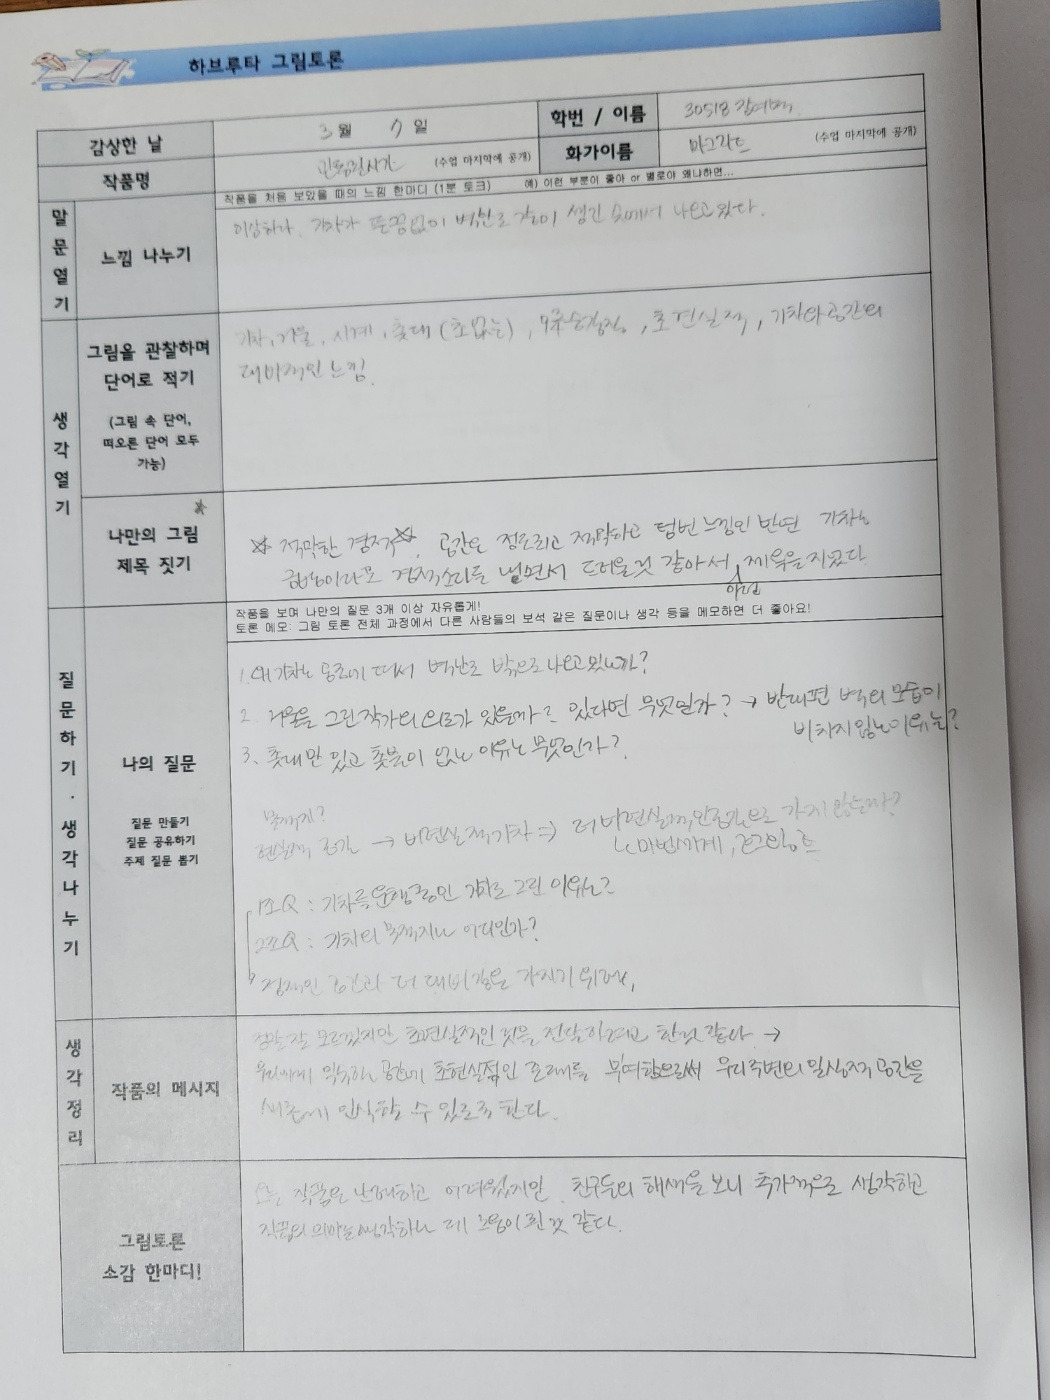 하브루타 그림토론
감상한 날
3월 7일
학번 / 이름
30518
작품명
(수업 마지막에 공개)
화가이름
마그리트
(수업 마지막에 공개)
말문열기
느낌 나누기
작품을 처음 보았을 때의 느낌 한마디 (1분 토크) 예) 이런 부분이 좋아 or 별로야 왜냐하면...
이상하다. 기차가 뜬끔없이 벽난로 같이 생긴 곳에서 나오고 있다.
생각열기
그림을 관찰하며
단어로 적기
(그림 속 단어,
떠오른 단어 모두
가능)
기차, 거울, 시계, 촛대 (초 없는), 초현실적, 기차와 공간의
대비적인 느낌.
나만의 그림
제목 짓기
적막한 경적. 공간은 정돈되고 적막하고 텅빈 느낌인 반면 기차는
금방이라도 경적소리를 내면서 뜨거울 것 같아서 제목을 지었다.
질문하기 · 생각나누기
나의 질문
질문 만들기
질문 공유하기
주제 질문 뽑기
작품을 보며 나만의 질문 3개 이상 자유롭게!
토론 메모: 그림 토론 전체 과정에서 다른 사람들의 보석 같은 질문이나 생각 등을 메모하면 더 좋아요!
1. 왜 기차는 공중에 떠서 벽난로 밖으로 나오고 있는가?
2. 거울을 그린 작가의 의도가 있을까? 있다면 무엇일까? → 반대편 벽의 모습이
비치지 않는 이유는?
3. 촛대만 있고 촛불이 없는 이유는 무엇인가?
현실적 공간 → 비현실적 기차 ⇒ 더 비현실적인 공간으로 가지 않는가?
1조Q : 기차를 운행중인 기차로 그린 이유는?
2조Q : 기차의 목적지는 어디인가?
정적인 공간과 더 대비감을 가지기 위해,
생각정리
작품의 메시지
정말 잘 모르겠지만 초현실적인 것을 전달하려고 한것 같다 →
우리에게 익숙한 공간에 초현실적인 존재를 부여함으로써 우리 주변의 일상적 공간을
새롭게 인식할 수 있도록 한다.
그림토론
소감 한마디!
오늘 작품은 난해하고 어려웠지만 친구들의 해석을 보니 추가적으로 생각하고
작품의 의미를 생각하는 데 도움이 된 것 같다.